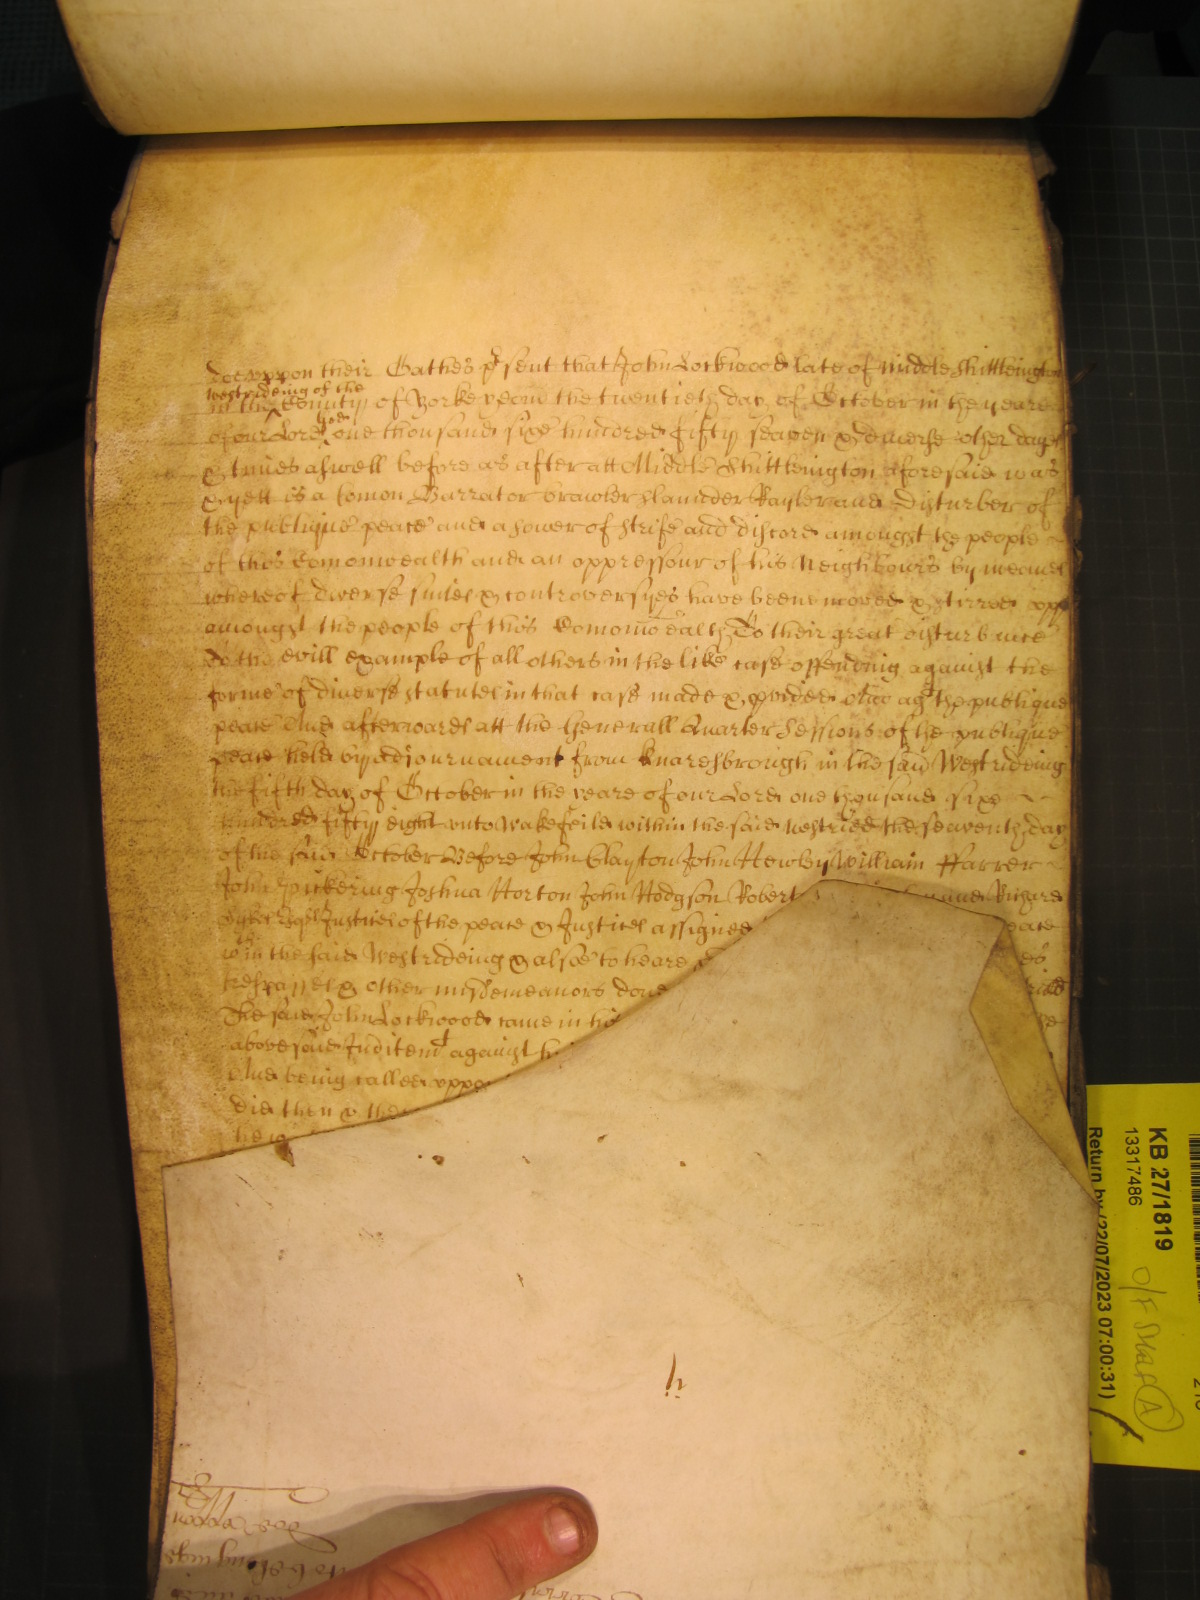 doe uppon their Oathes p'sent that John Lockwood late of Middle Shittleington
westrideing of the
in the County of Yorke upon the twentieth day of October in the yeare
God
of our Lord one thousand sixe hundred fifty seaven & diverse other dayes
& times aswell before as after att Middle Shittleington aforesaid was
& yett is a Comon Barrator brawler slaunder Rayler and Disturber of
the publique peace and a sower of strife and discord amongst the people
of this Comonwealth and an oppressour of his Neighbours by meanes
whereof diverse suites & controversyes have beene moved & stirred upp
amongst the people of this Comonwealth To their great disturbance
To the evill example of all others in the like case offending against the
forme of diverse statutes in that case made & p'vided And agt the publique
peace And afterwards att the Generall Quarter Sessions of the publique
peace held by adjournament from Knaresbrough in the said Westrideing
the fifth day of October in the yeare of our Lord one thousand sixe
hundred fifty eight unto Wakefeild within the said Westrid the seaventh day
of the said October Before John Clayton John Hewley William Farrer
John Pickering Joshua Horton John Hodgson Robert Richard
Esqrs Justices of the peace & Justices assigned peace
in the said Westrideing & alsoe to heare es
trespasses & other misdemeanors done
The said John Lockwood came in his
abovesaid Inditemt against h
And being called uppo
did then & the
he is
KB 27/1819
13317486
Return by (22/07/2023 07:00:31)
O/F Map A